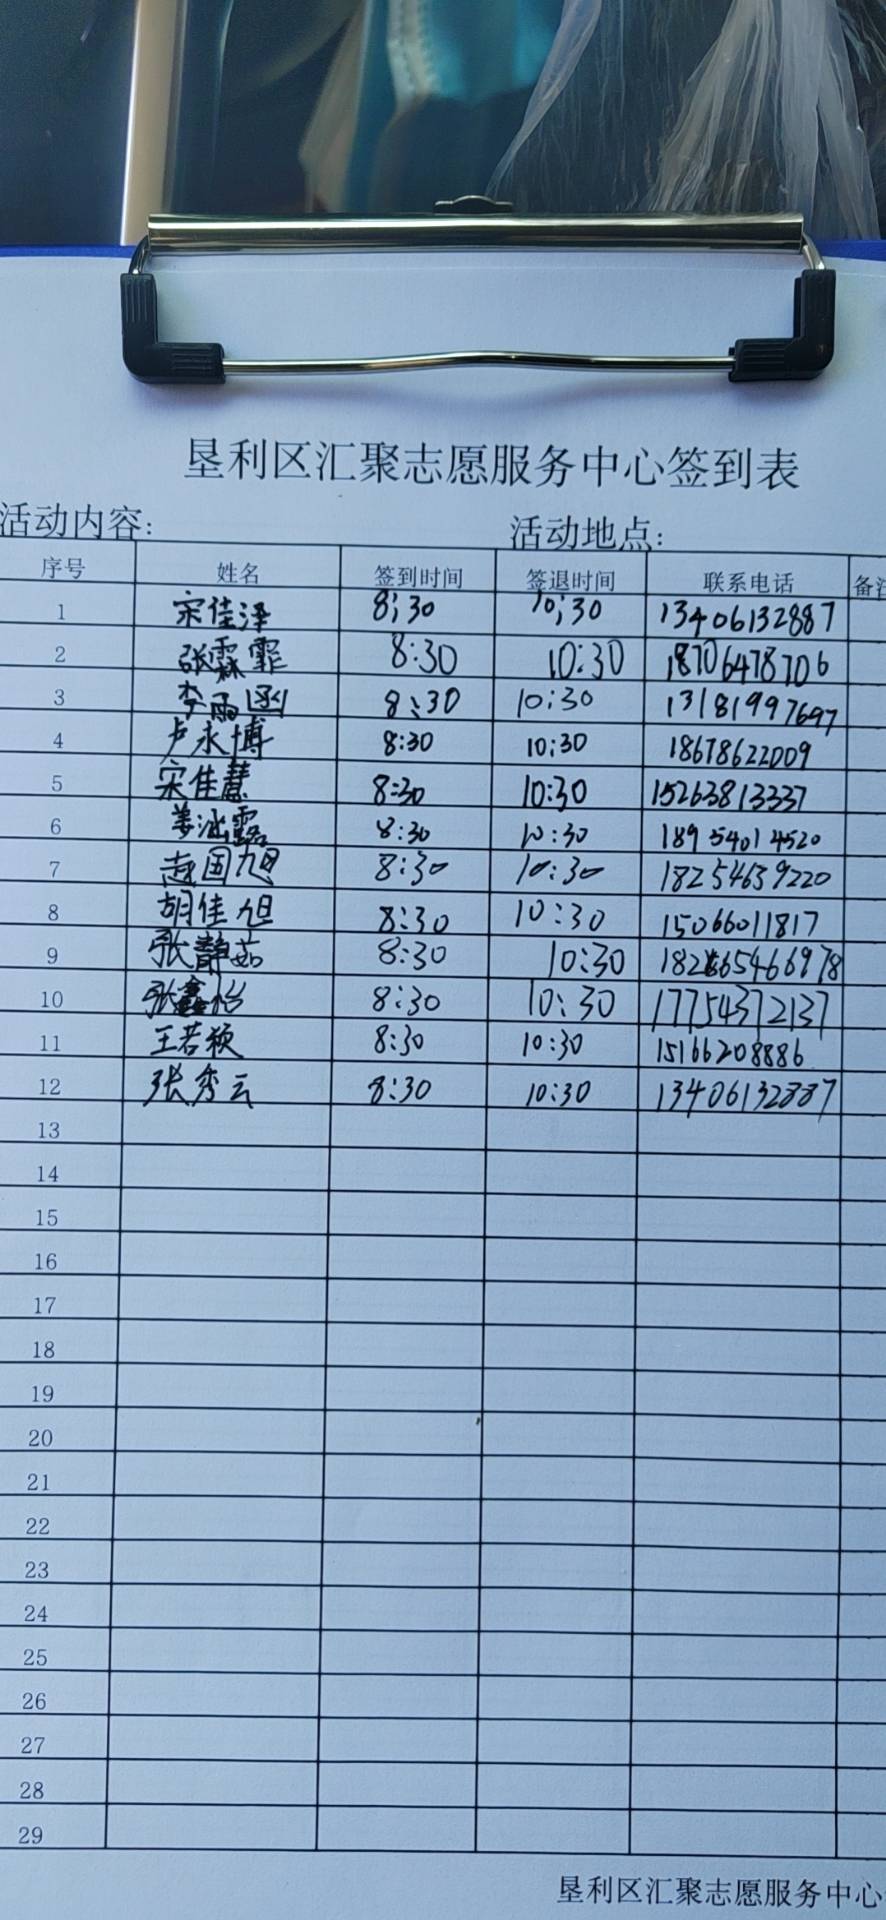 垦利区汇聚志愿服务中心签到表
活动内容: 活动地点:
序号 姓名 签到时间 签退时间 联系电话 备注
1 宋佳泽 8:30 10:30 13406132887
2 张霖霏 8:30 10:30 18706478706
3 李雨函 8:30 10:30 13181997697
4 卢永博 8:30 10:30 18678622009
5 宋佳慧 8:30 10:30 15263813337
6 姜涵露 8:30 10:30 18954014520
7 赵国旭 8:30 10:30 18254639220
8 胡佳旭 8:30 10:30 15066011817
9 张静茹 8:30 10:30
10 张鑫怡 8:30 10:30 17754372137
11 王若颖 8:30 10:30 15166208886
12 张秀云 8:30 10:30 13406132887
13
14
15
16
17
18
19
20
21
22
23
24
25
26
27
28
29
垦利区汇聚志愿服务中心